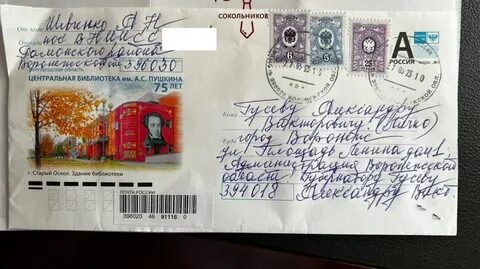 СОКОЛЬНИКОВ
От кого Шевченко А Н
пос ВНИИСС
Рамонского района
Воронежской 396030
ЦЕНТРАЛЬНАЯ БИБЛИОТЕКА им. А.С. ПУШКИНА
75 ЛЕТ
г. Старый Оскол. Здание библиотеки
РОССИЯ
6
5
25
А
27 05 23 10
Кому Гусеву Александру
Викторовичу. (Лично)
Куда город Воронеж
ул Площадь Ленина дом 1.
Администрация Воронежской
области Губернатору Гусеву
394018 Александру Викт.
ПОЧТА РОССИИ
396020 46 91116 0